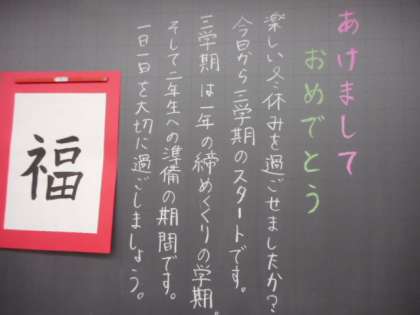 あけまして
おめでとう
楽しい冬休みを過ごせましたか？
今日から三学期のスタートです。
三学期は一年の締めくくりの学期。
そして二年生への準備の期間です。
一日一日を大切に過ごしましょう。
福